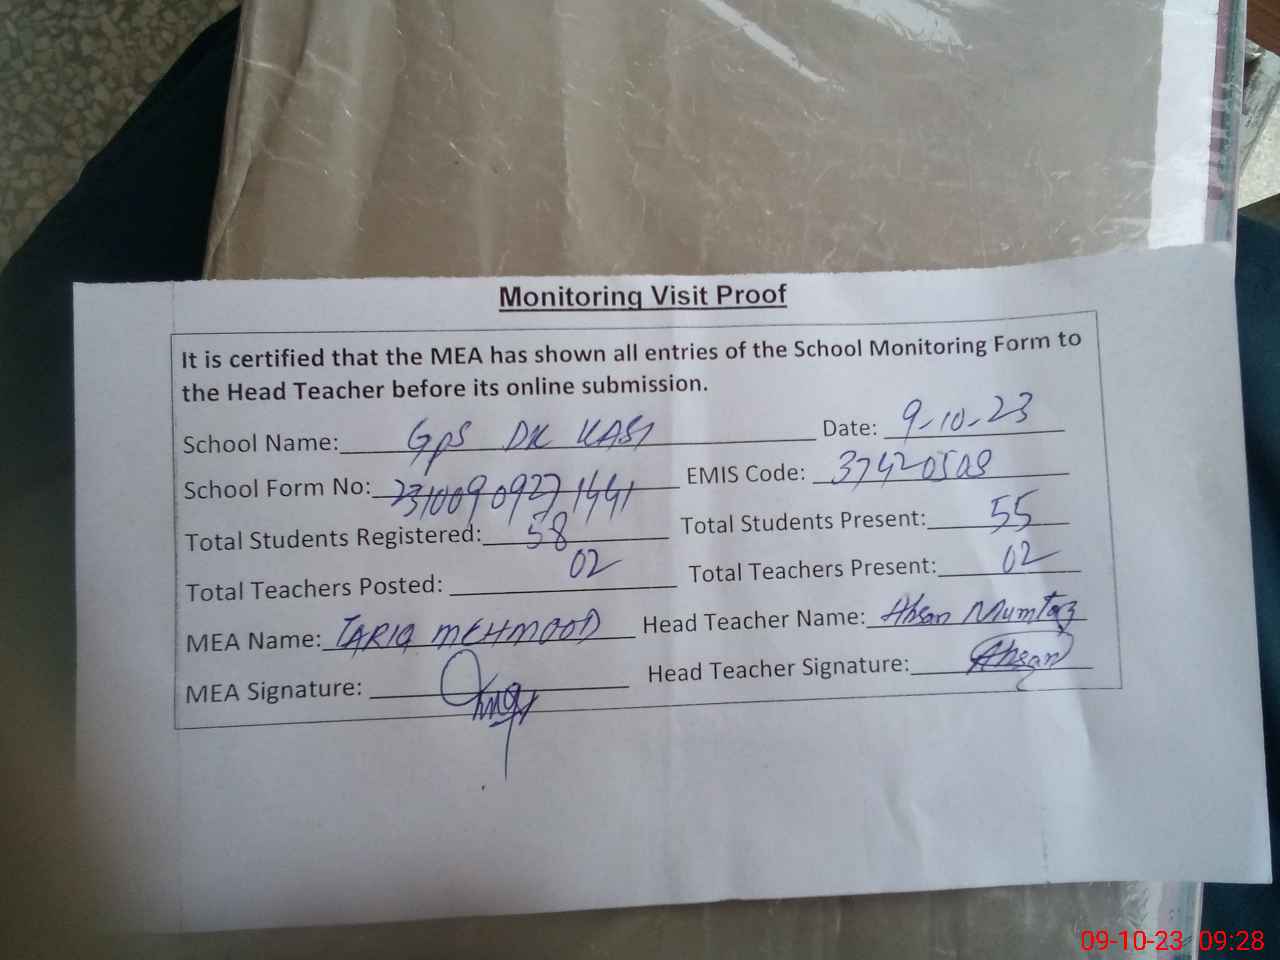 Monitoring Visit Proof
It is certified that the MEA has shown all entries of the School Monitoring Form to
the Head Teacher before its online submission.
School Name: GPS DK KASI Date: 9-10-23
School Form No: 231009092721441 EMIS Code: 37420508
Total Students Registered: 58 Total Students Present: 55
Total Teachers Posted: 02 Total Teachers Present: 02
MEA Name: TARIQ MEHMOOD Head Teacher Name: Ahsan Mumtaz
MEA Signature: Head Teacher Signature: Ahsan
09-10-23 09:28